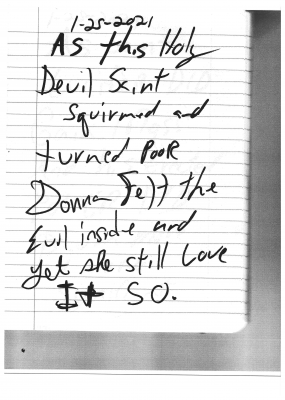 1-25-2021
As this Holy
Devil Saint
Squirmed and
turned POOR
Donna Felt the
Evil inside and
yet she still Love
It SO.